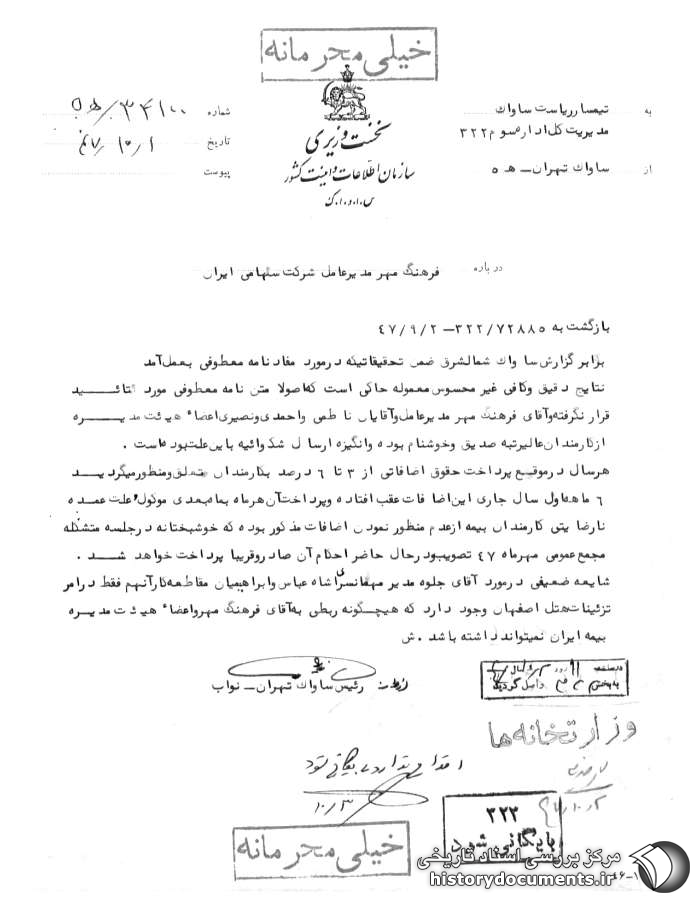 خیلی محرمانه
نخست وزیری
سازمان اطلاعات و امنیت کشور
س.ا.و.ا.ک
به تیمسار ریاست ساواک
مدیریت کل اداره سوم ۳۲۲
از ساواک تهران – ه ۵
شماره ۳۴۱۰۰ / ه۵
تاریخ ۴۷/۱۰/۱
پیوست
درباره فرهنگ مهر مدیرعامل شرکت سهامی ایران
بازگشت به ۳۲۲/۷۲۸۸۵ – ۴۷/۹/۲
برابر گزارش ساواک شمالشرق ضمن تحقیقاتیکه درمورد مفاد نامه معطوفی بعمل‌آمد
نتایج دقیق وکافی غیر محسوس معموله حاکی است که‌اصولا متن نامه معطوفی مورد تائید
قرار نگرفته‌وآقای فرهنگ مهر مدیرعامل‌وآقایان ناطمی واحمدی‌ونصیری‌اعضاء هیئت مدیره
ازکارمندان‌عالیرتبه صدیق وخوشنام بوده وانگیزه ارسال شکوائیه باین‌علت‌بوده‌است .
هرسال درموقع پرداخت حقوق اضافاتی از ۳ تا ۶ درصد بکارمندان متعلق‌ومنظورمیگردید
۶ ماهه‌اول سال جاری این‌اضافات عقب افتاده وپرداخت‌آن‌هرماه بماه‌بعدی موکول وعلت عمده
نارضایتی کارمندان بیمه ازعدم منظور نمودن اضافات مذکور بوده که خوشبختانه درجلسه متشکله
مجمع‌عمومی مهرماه ۴۷ تصویب‌ودرحال حاضر احکام آن صادروقریبا پرداخت خواهد شد .
شایعه ضعیفی درمورد آقای جلوه مدیر مهمانسرای شاه عباس وابراهیمیان مقاطعه‌کارآنهم فقط درامر
تزئینات‌هتل اصفهان وجود دارد که هیچگونه ربطی به‌آقای فرهنگ مهرواعضاء هیئت مدیره
بیمه ایران نمیتوانداشته باشد . ش
رئیس ساواک تهران – نواب
واصل گردید
وزارتخانه ها
اقدامی ندارد بایگانی شود
۱۰/۳
۳۲۲
بایگانی شود
خیلی محرمانه
مرکز بررسی اسناد تاریخی
historydocuments.ir